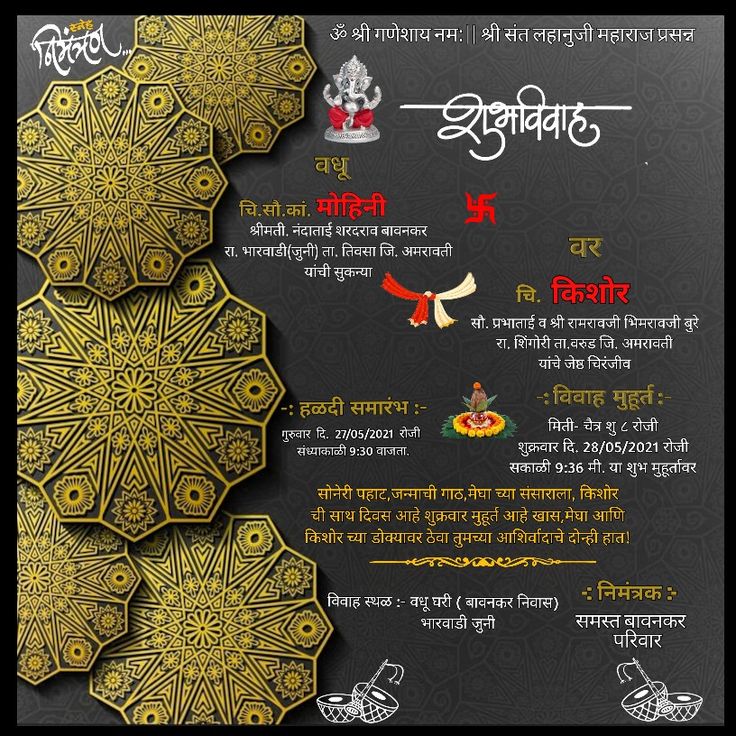 स्नेह
निमंत्रण...
ॐ श्री गणेशाय नम: || श्री संत लहानुजी महाराज प्रसन्न
शुभविवाह
वधू
चि.सौ.कां. मोहिनी
श्रीमती. नंदाताई शरदराव बावनकर
रा. भारवाडी(जुनी) ता. तिवसा जि. अमरावती
यांची सुकन्या
वर
चि. किशोर
सौ. प्रभाताई व श्री रामरावजी भिमरावजी बुरे
रा. शिंगोरी ता.वरुड जि. अमरावती
यांचे जेष्ठ चिरंजीव
-: हळदी समारंभ :-
गुरुवार दि. 27/05/2021 रोजी
संध्याकाळी 9:30 वाजता.
-: विवाह मुहूर्त :-
मिती- चैत्र शु ८ रोजी
शुक्रवार दि. 28/05/2021 रोजी
सकाळी 9:36 मी. या शुभ मुहूर्तावर
सोनेरी पहाट,जन्माची गाठ,मेघा च्या संसाराला, किशोर
ची साथ दिवस आहे शुक्रवार मुहूर्त आहे खास,मेघा आणि
किशोर च्या डोक्यावर ठेवा तुमच्या आशिर्वादाचे दोन्ही हात!
विवाह स्थळ :- वधू घरी ( बावनकर निवास)
भारवाडी जुनी
-: निमंत्रक :-
समस्त बावनकर
परिवार